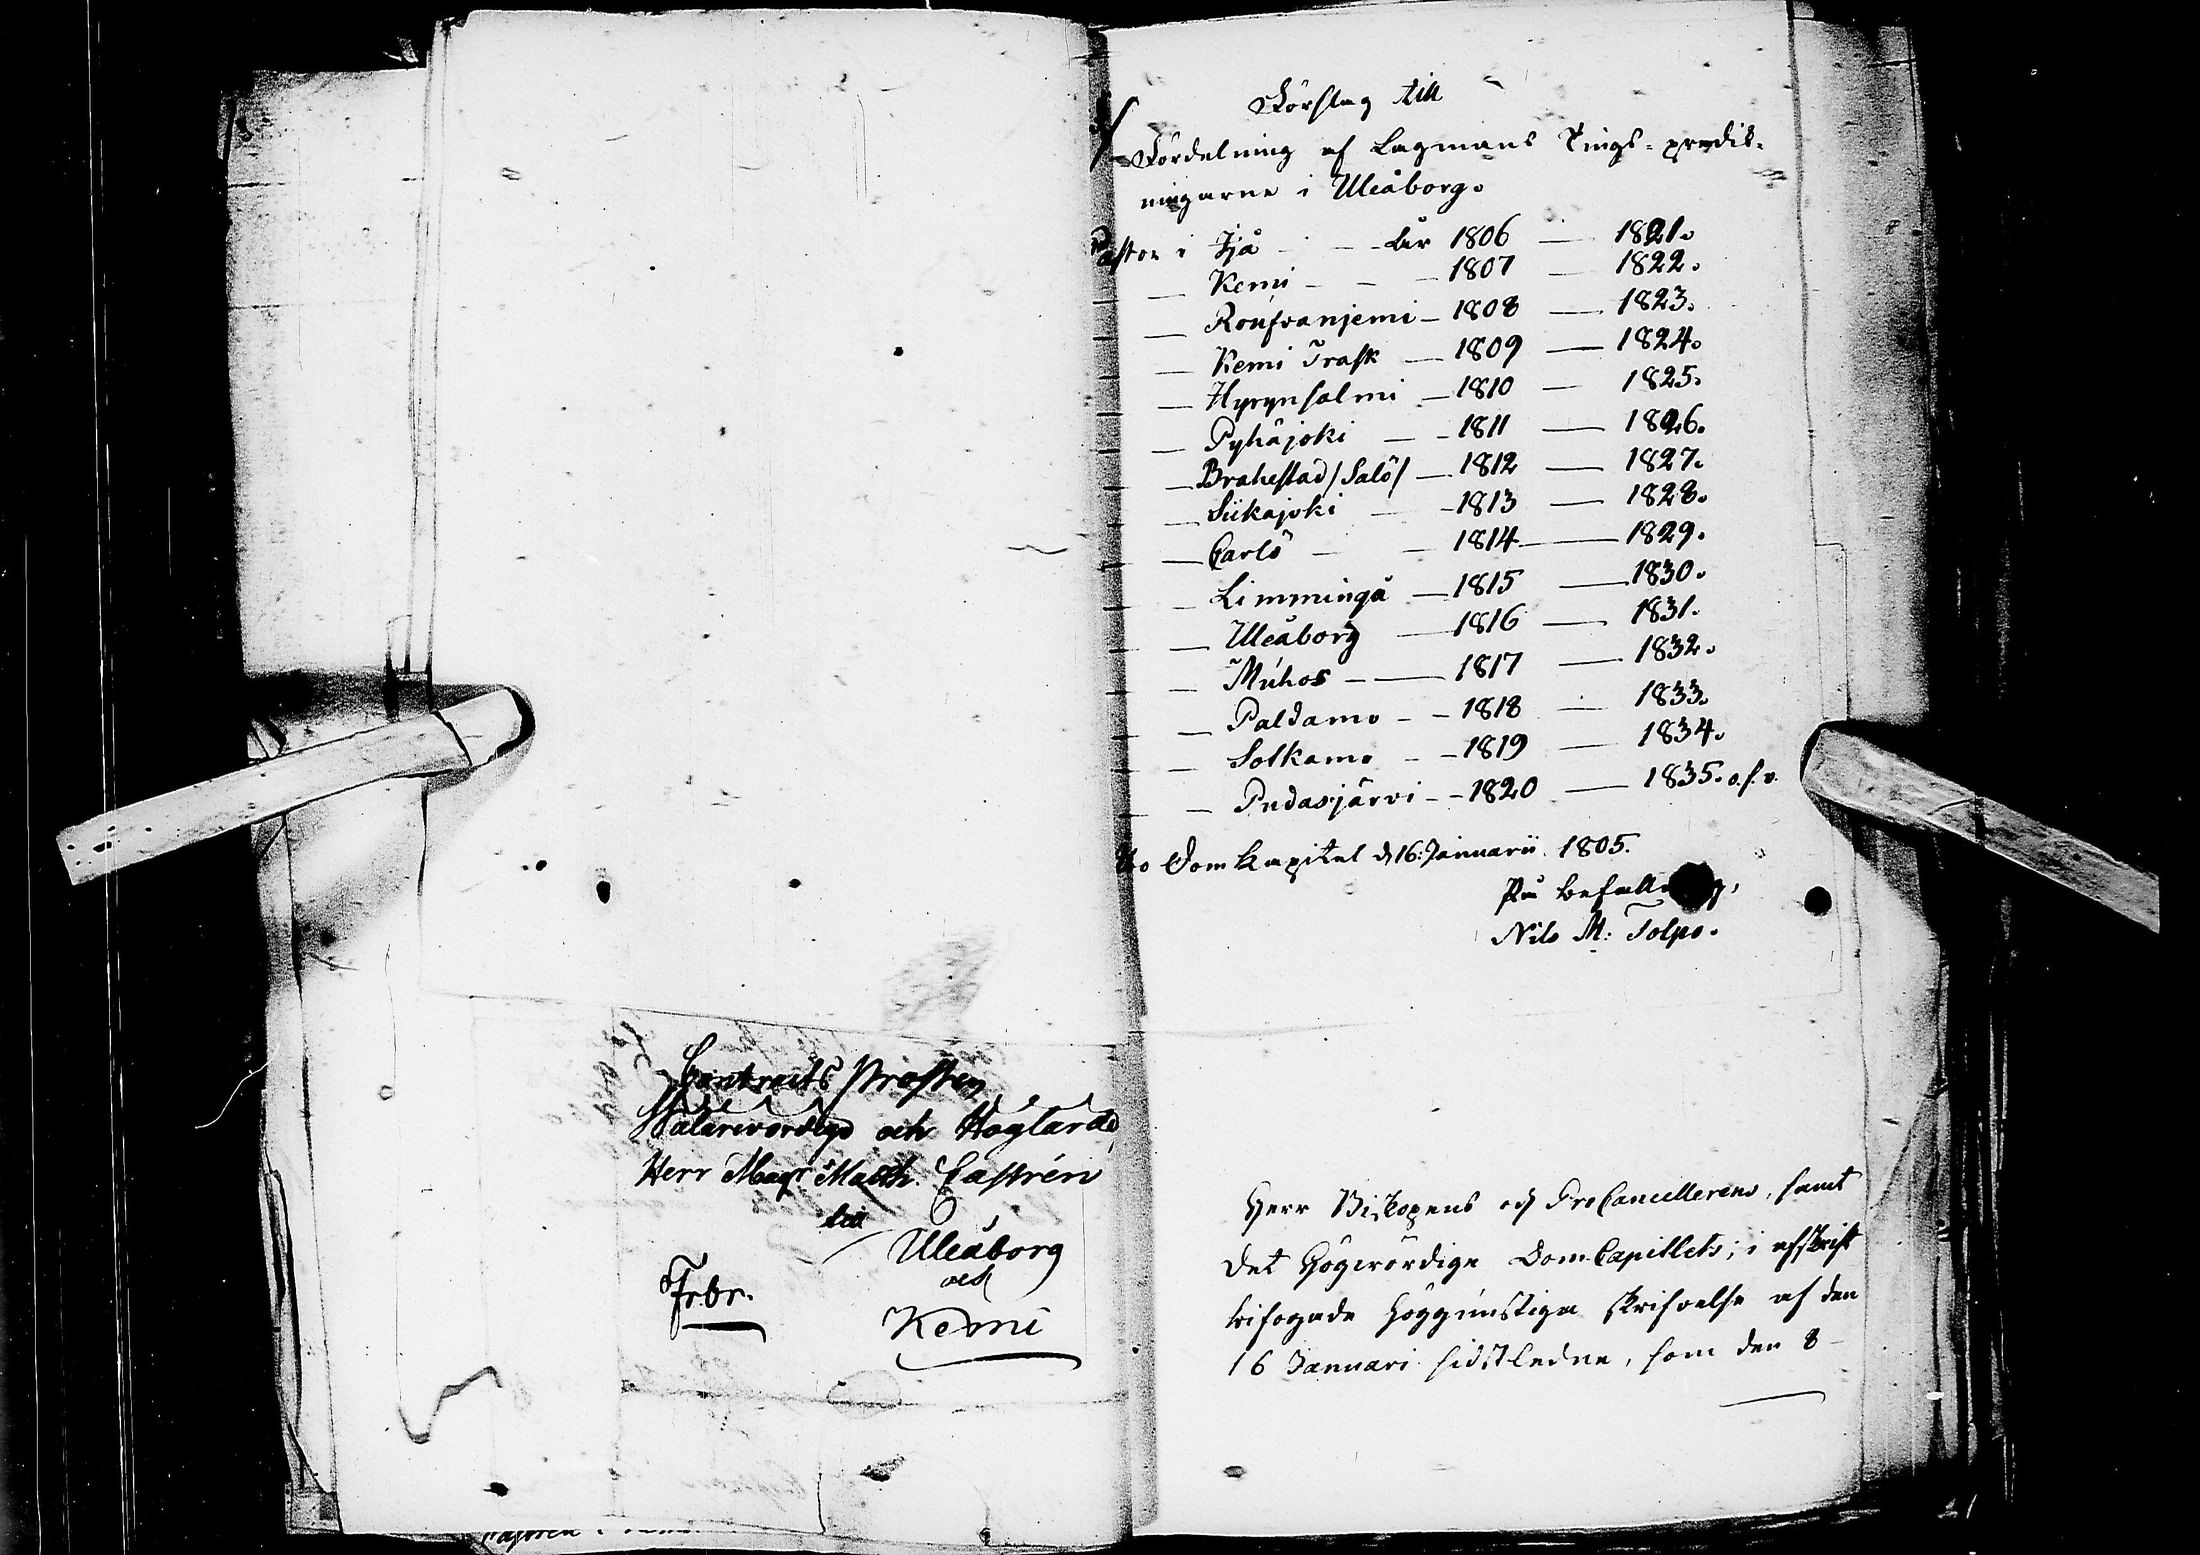 Contracts Prosten
Wälärevördige och Höglärde
Herr Mag:r Matth. Castrén
till
Uleåborg
och
Frbr.
Kemi
Förslag till
Fördelning af Lagmans Tings-predik-
ningarne i Uleåborg.
Pastor i Ijå — — år 1806 — 1821.
— Kemi — — 1807 — 1822.
— Roufvanjemi — 1808 — 1823.
— Kemi Träsk — 1809 — 1824.
— Hyrynsalmi — 1810 — 1825.
— Pyhäjoki — — 1811 — 1826.
— Brahestad /Salô/ — 1812 — 1827.
— Siikajoki — — 1813 — 1828.
— Carlö — — 1814 — 1829.
— Limminga — 1815 — 1830.
— Uleåborg — 1816 — 1831.
— Muhos — — 1817 — 1832.
— Paldamo — — 1818 — 1833.
— Sotkamo — — 1819 — 1834.
— Pudasjärvi — — 1820 — 1835. o.s.v.
Åbo Domkapitel d 16: Januarii 1805.
På befallning,
Nils M: Tolpo.
Herr Biskopens och ProCancellerens, samt
det Högvördige DomCapitlets, i afskrift
bifogade höggunstiga skrifvelse af den
16 Januari sidstledne, som den 8